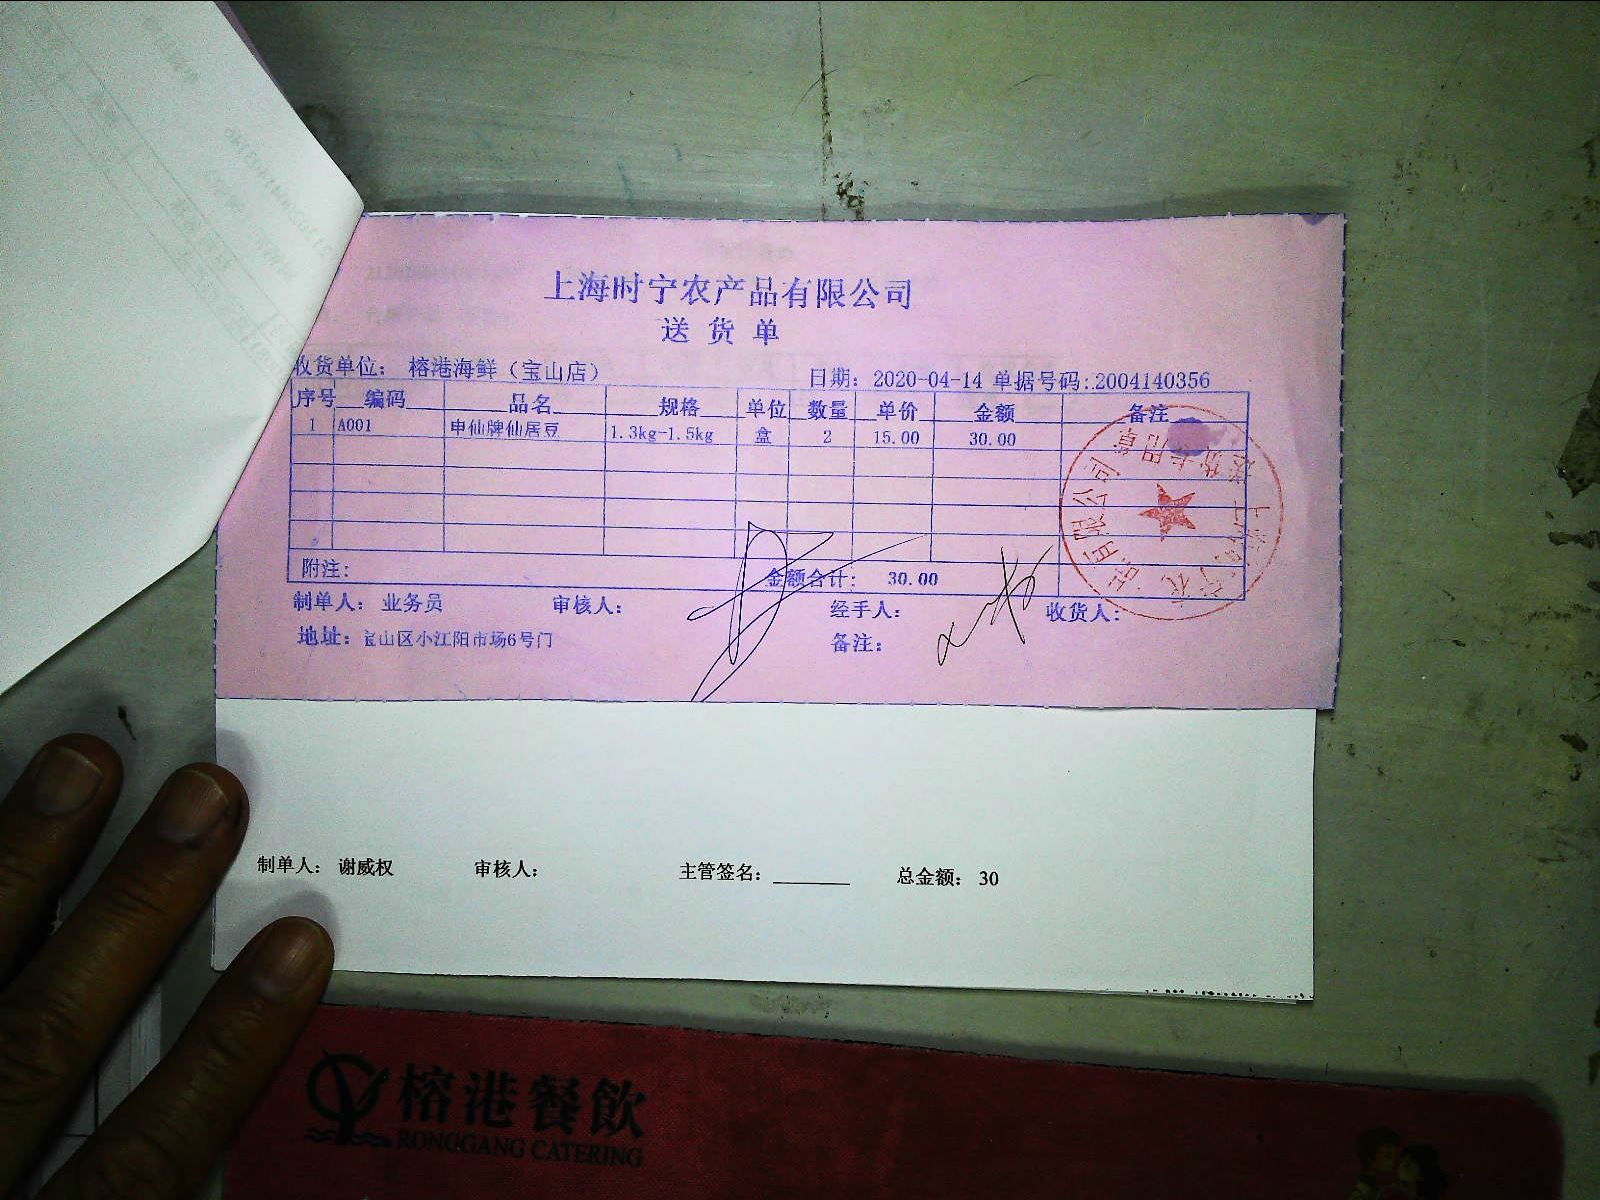 上海时宁农产品有限公司
送货单
收货单位： 榕港海鲜（宝山店） 日期： 2020-04-14 单据号码:2004140356
序号 编码 品名 规格 单位 数量 单价 金额 备注
1 A001 申仙牌仙居豆 1.3kg-1.5kg 盒 2 15.00 30.00
附注: 金额合计: 30.00
制单人： 业务员 审核人： 经手人： 收货人：
地址： 宝山区小江阳市场6号门 备注：
制单人： 谢威权 审核人： 主管签名：________ 总金额： 30
榕港餐飲
RONGGANG CATERING